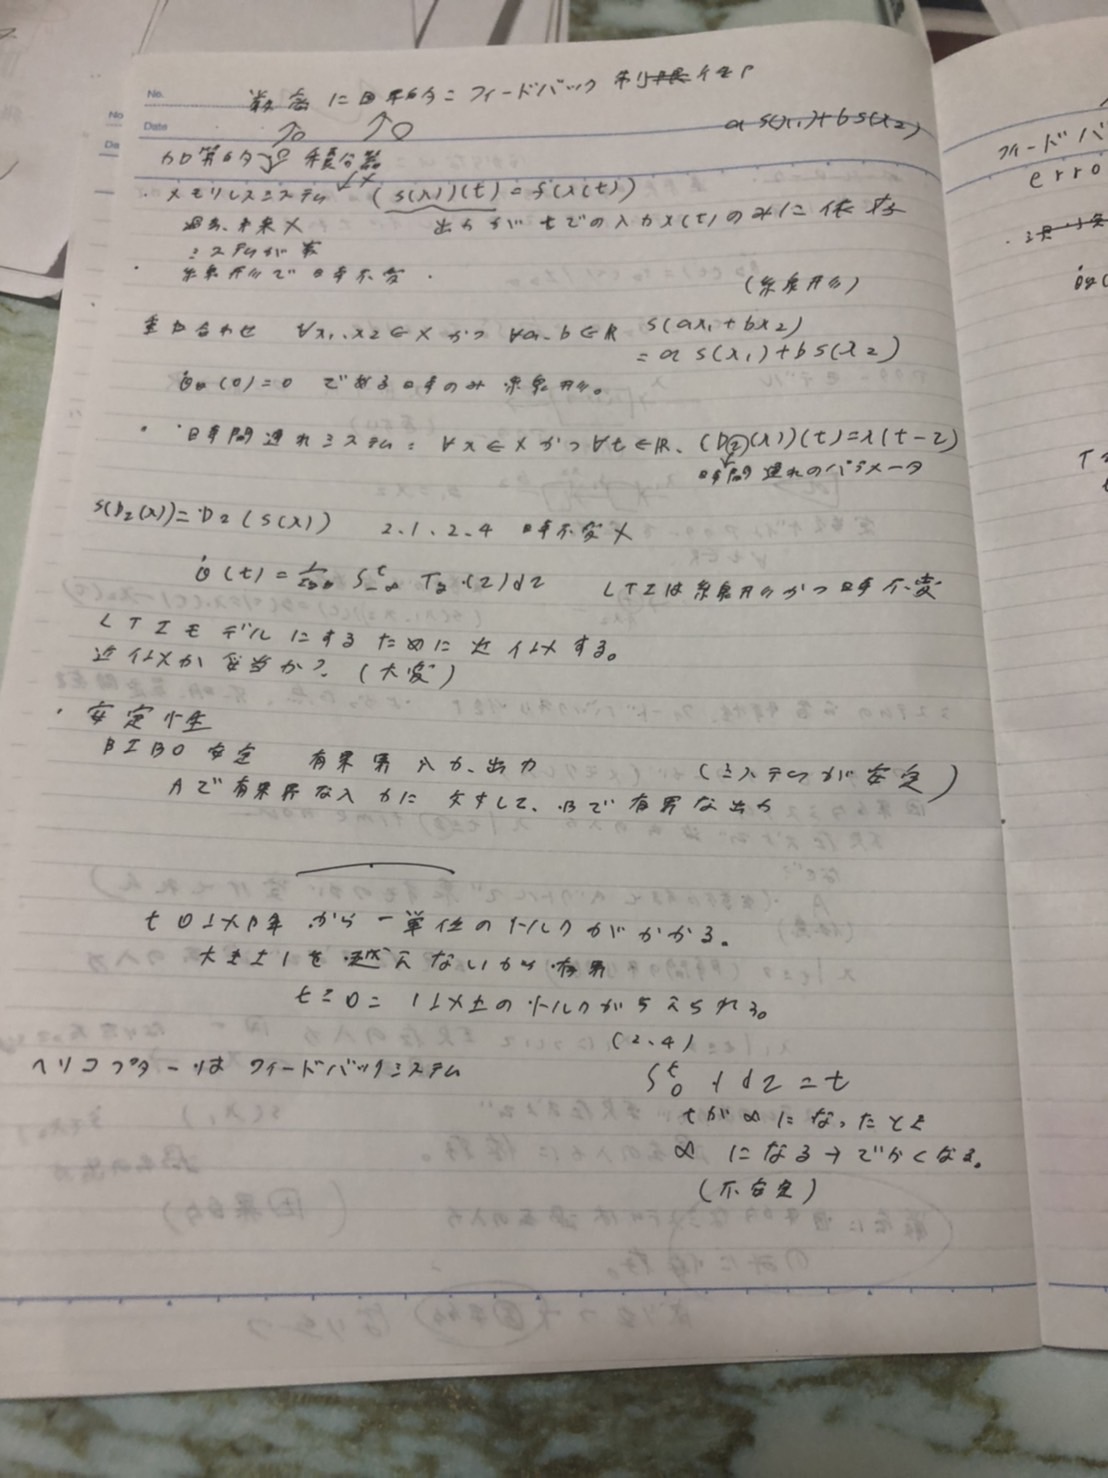 No.
Date
厳密に因果的 = フィードバック 制
a s(x₁)+b s(x₂)
加算的 積分器
・メモリレスシステム (s(x))(t)=f(x(t))
過去、未来 × 出力がtでの入力x(t)のみに依存
システムが
・線形で時不変.
(線形)
重ね合わせ ∀x₁, x₂∈X かつ ∀a, b∈R s(ax₁+bx₂)
= a s(x₁)+b s(x₂)
(0)=0 である時のみ線形。
・時間遅れシステム: ∀x∈X かつ ∀t∈R、(D₂(x))(t)=x(t-2)
時間遅れのパラメータ
s(D₂(x))=D₂(s(x)) 2.1、2.4 時不変 ×
θ̇(t)= ∫ᵗ₋∞ (2)d2 LTIは線形かつ時不変
LTIモデルにするために近似する。
近似が妥当か? (大変)
・安定性
BIBO安定 有界 入力、出力 (システムが安定)
Aで有界な入力に対して、Bで有界な出力
t 0以 から一単位のトルクがかかる。
大きさ1を越えないから有界
t=0= 1以上のトルクが与えられる。
(2.4)
ヘリコプターはフィードバックシステム
∫ᵗ₀ 1d2=t
tが∞になったとき
∞になる→でかくなる。
(不安定)
フィードバ
erro